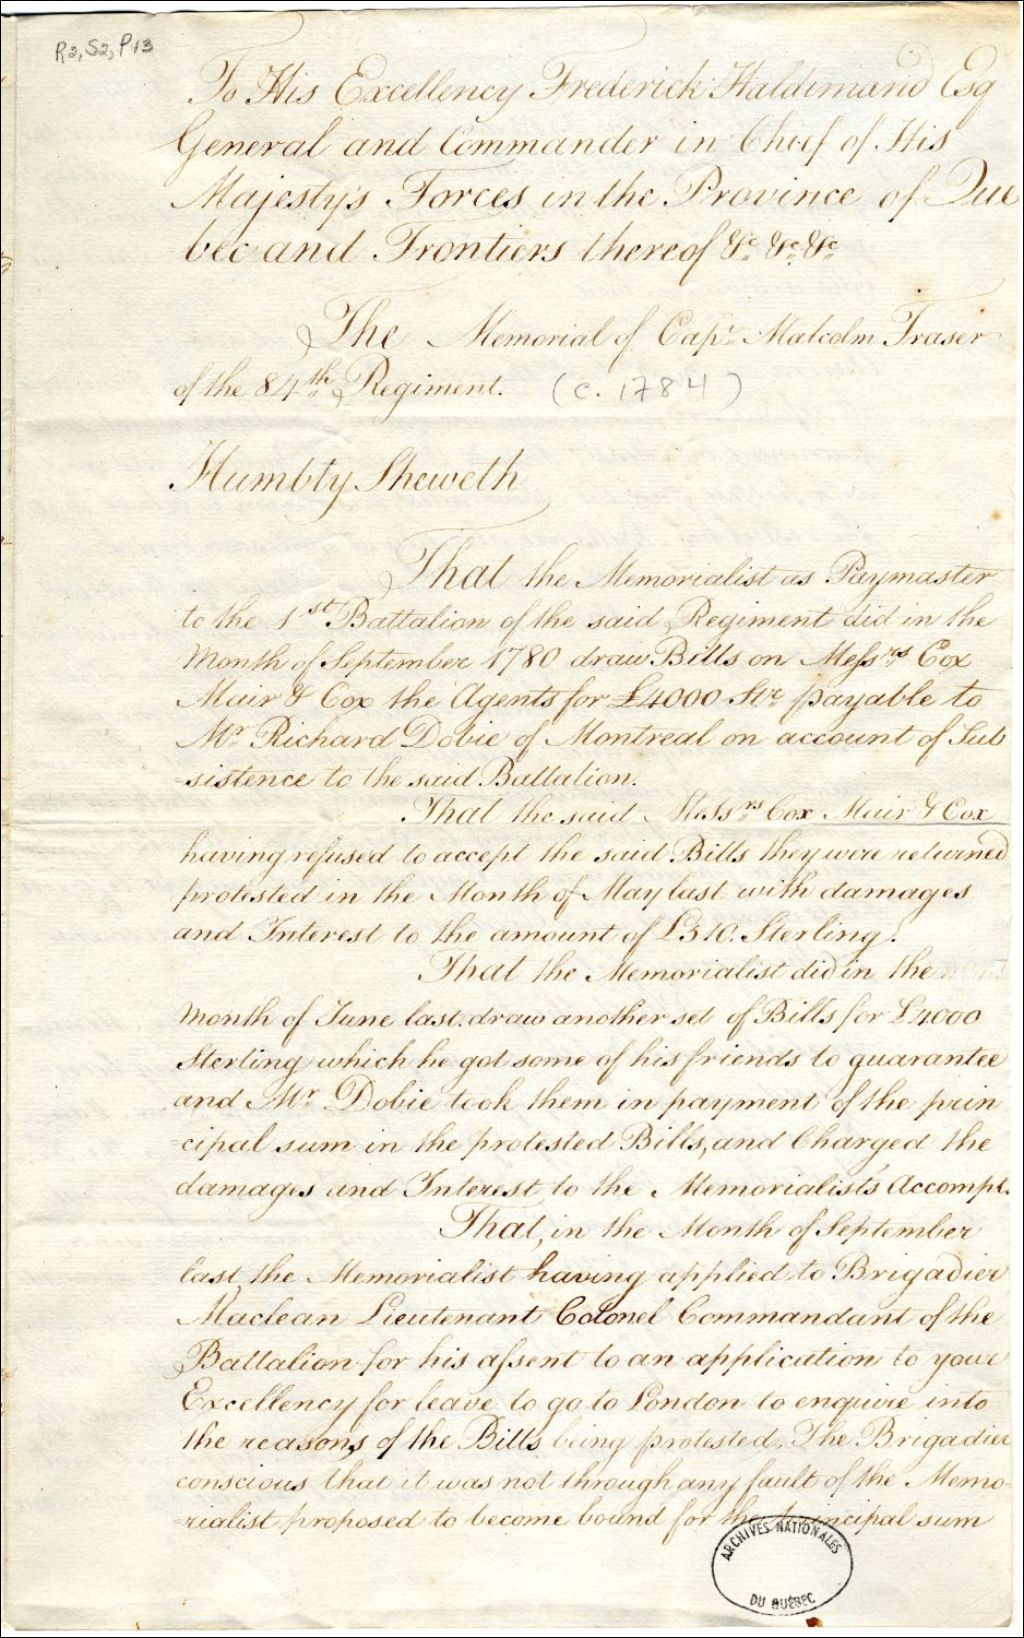 R2, S2, P13
To His Excellency Frederick Haldimand Esq
General and Commander in Chief of His
Majesty's Forces in the Province of Que
bec and Frontiers thereof &c. &c. &c.
The Memorial of Capt. Malcolm Fraser
of the 84th Regiment. (c. 1784)
Humbly Sheweth
That the Memorialist as Paymaster
to the 1st Battalion of the said Regiment did in the
Month of September 1780 draw Bills on Messrs Cox
Mair & Cox the Agents for £4000 Str. payable to
Mr. Richard Dobie of Montreal on account of Sub
-sistence to the said Battalion.
That the said Messrs Cox Mair & Cox
having refused to accept the said Bills they were returned
protested in the Month of May last with damages
and Interest to the amount of £510. Sterling.
That the Memorialist did in the
Month of June last draw another set of Bills for £4000
Sterling which he got some of his friends to guarantee
and Mr. Dobie took them in payment of the prin
-cipal sum in the protested Bills, and Charged the
damages and Interest to the Memorialist's Accompt.
That, in the Month of September
last, the Memorialist having applied to Brigadier
Maclean Lieutenant Colonel Commandant of the
Battalion for his assent to an application to your
Excellency for leave to go to London to enquire into
the reasons of the Bills being protested, The Brigadier
conscious that it was not through any fault of the Memo
-rialist proposed to become bound for the principal sum
ARCHIVES NATIONALES
DU QUÉBEC